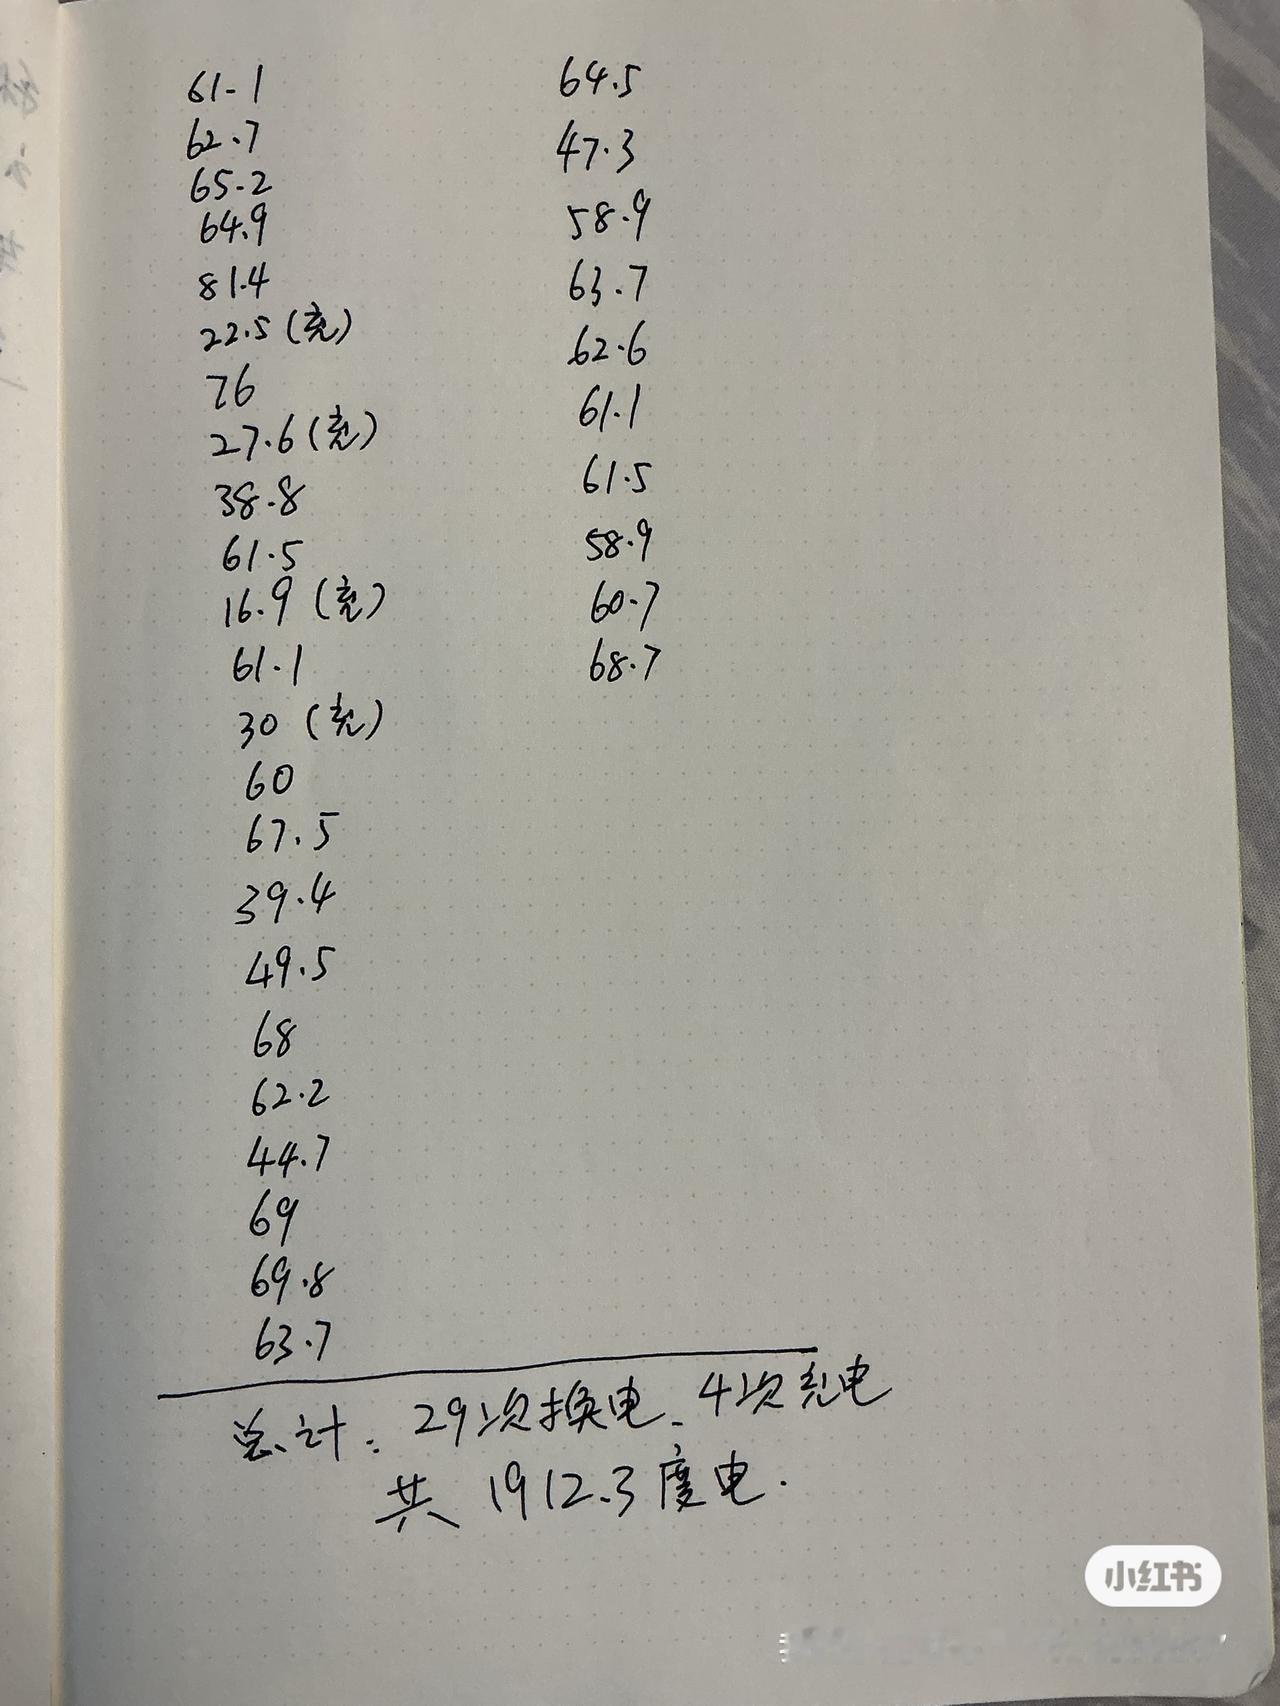 61.1
62.7
65.2
64.9
81.4
22.5(充)
76
27.6(充)
38.8
61.5
16.9(充)
61.1
30(充)
60
67.5
39.4
49.5
68
62.2
44.7
69
69.8
63.7
64.5
47.3
58.9
63.7
62.6
61.1
61.5
58.9
60.7
68.7
总计:29次换电、4次充电
共1912.3度电.
小红书